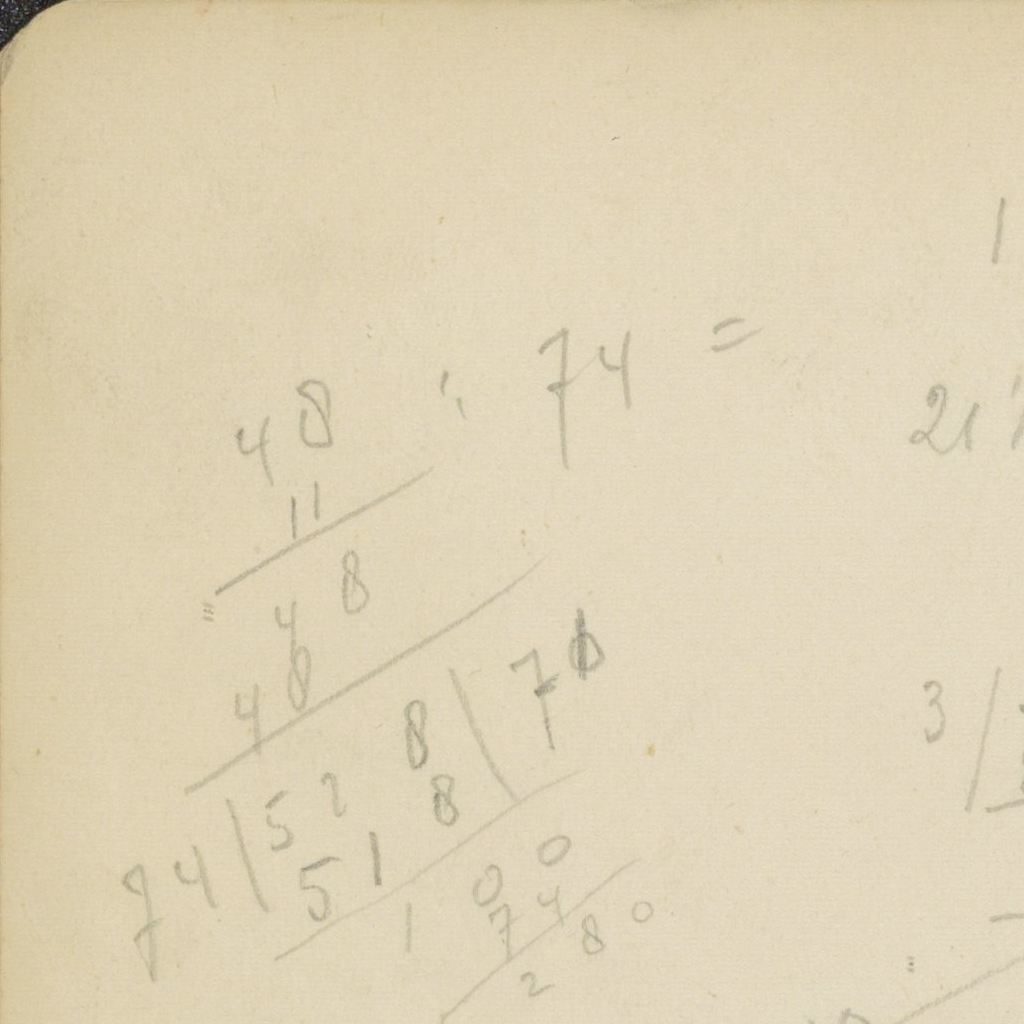 48 : 74 =
11
48
48
74 | 528 | 7
518
100
74
280
1
21
3 /